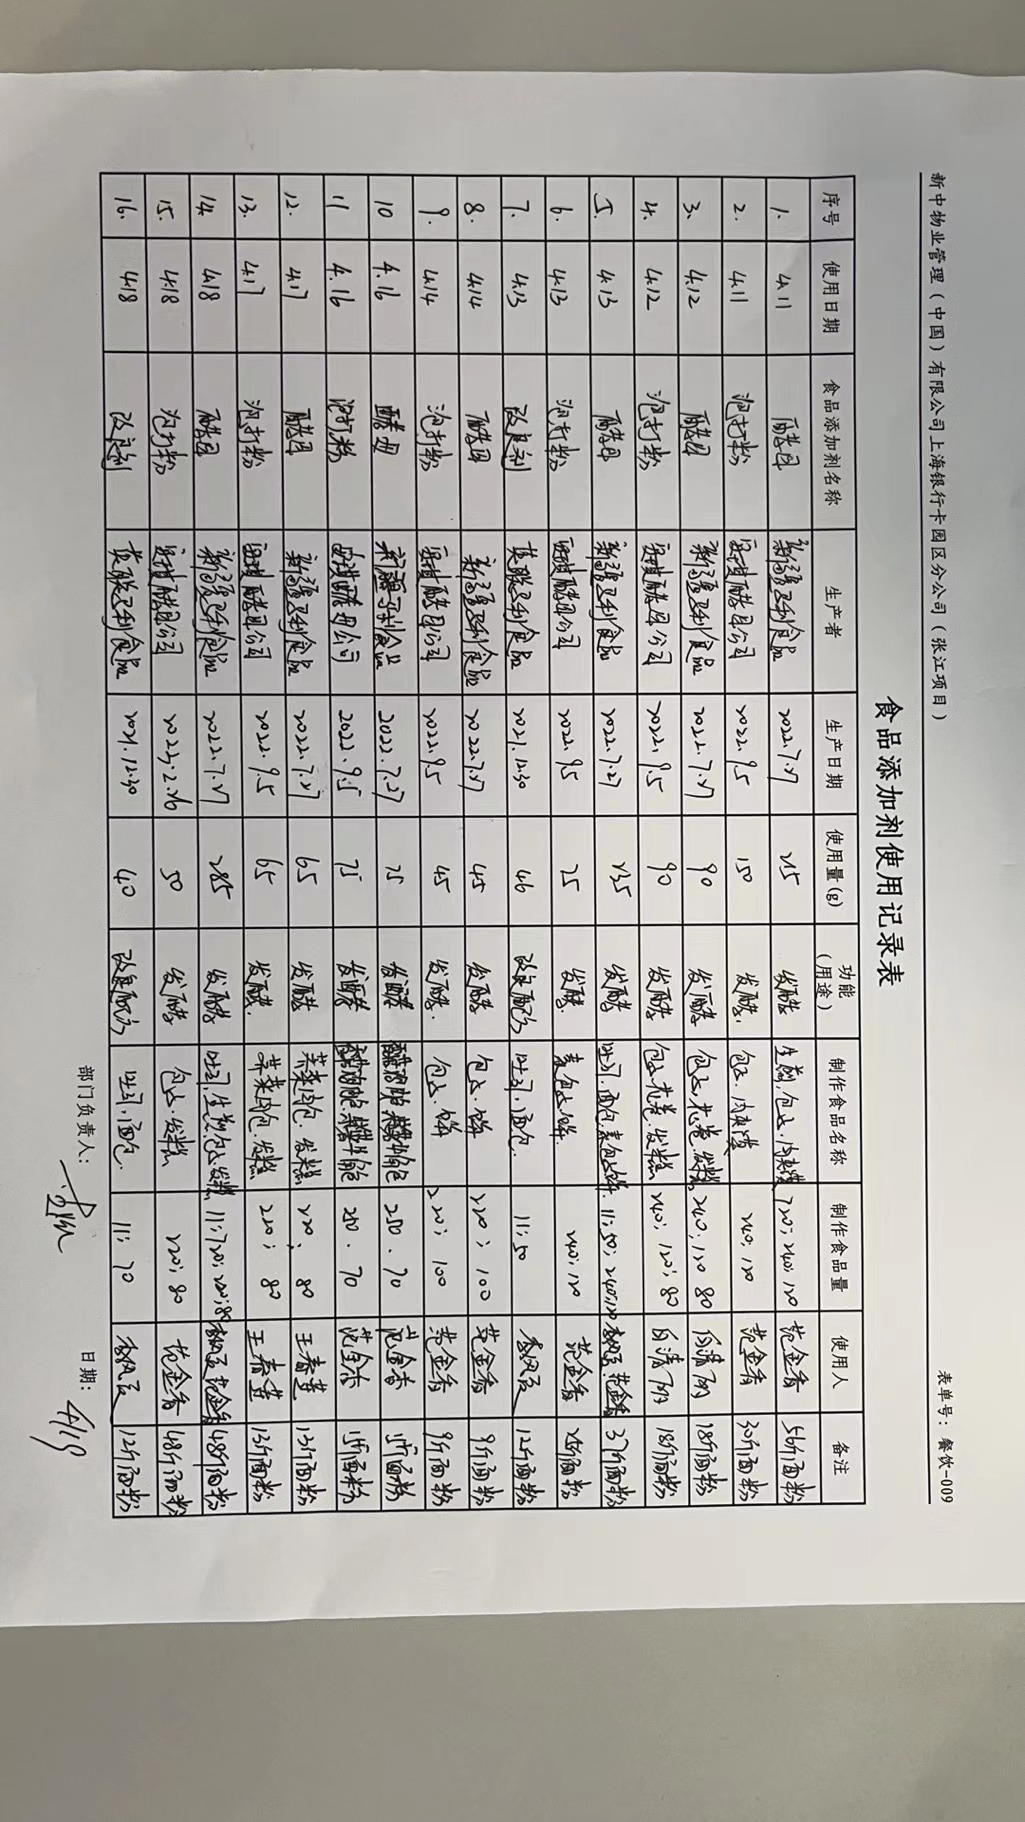 新中物业管理（中国）有限公司上海银行卡园区分公司（张江项目） 表单号：餐饮-009
食品添加剂使用记录表
序号 使用日期 食品添加剂名称 生产者 生产日期 使用量(g) 功能（用途） 制作食品名称 制作食品量 使用人 备注
1. 4.11 酵母 新疆马利食品 2022.7.27 215 发酵 生煎,包子, 720;240;120 范金香 56斤面粉
2. 4.11 泡打粉 安琪酵母公司 2022.9.5 150 发酵. 包子, 240;120 范金香 30斤面粉
3. 4.12 酵母 新疆马利食品 2022.7.27 90 发酵 包子.花卷.发糕 240;120 80 18斤面粉
4. 4.12 泡打粉 安琪酵母公司 2022.9.5 90 发酵 包子.花卷.发糕 240;120;80 18斤面粉
5. 4.13 酵母 新疆马利食品 2022.7.27 235 发酵 吐司.面包. 11;50;240;120 范金香 37斤面粉
6. 4.13 泡打粉 安琪酵母公司 2022.9.5 25 发酵. 240;120 范金香 斤面粉
7. 4.13 改良剂 英联马利食品 2021.12.30 46 改良 吐司.面包. 11;50 12斤面粉
8. 4.14 酵母 新疆马利食品 2022.7.27 45 发酵 包子. 220;100 范金香 9斤面粉
9. 4.14 泡打粉 安琪酵母公司 2022.9.5 45 发酵. 包子. 220;100 范金香 9斤面粉
10 4.16 酵母 新疆马利食品 2022.7.27 75 发酵 250.70 范金香 15斤面粉
11 4.16 泡打粉 安琪酵母公司 2022.9.5 75 发酵 250.70 范金香 15斤面粉
12. 4.17 酵母 新疆马利食品 2022.7.27 65 发酵 菜肉包.发糕 220、80 王春莲 13斤面粉
13. 4.17 泡打粉 安琪酵母公司 2022.9.5 65 发酵. 菜肉包.发糕 220;80 王春莲 13斤面粉
14. 4.18 酵母 新疆马利食品 2022.7.27 285 发酵 吐司.生煎.包子.发糕 11;720;220;80 范金香 48斤面粉
15. 4.18 泡打粉 安琪酵母公司 2022.2.26 50 发酵 包子.发糕 220;80 范金香 48斤面粉
16. 4.18 改良剂 英联马利食品 2021.12.30 40 改良 吐司.面包. 11;70 12斤面粉
部门负责人： 日期：4/19